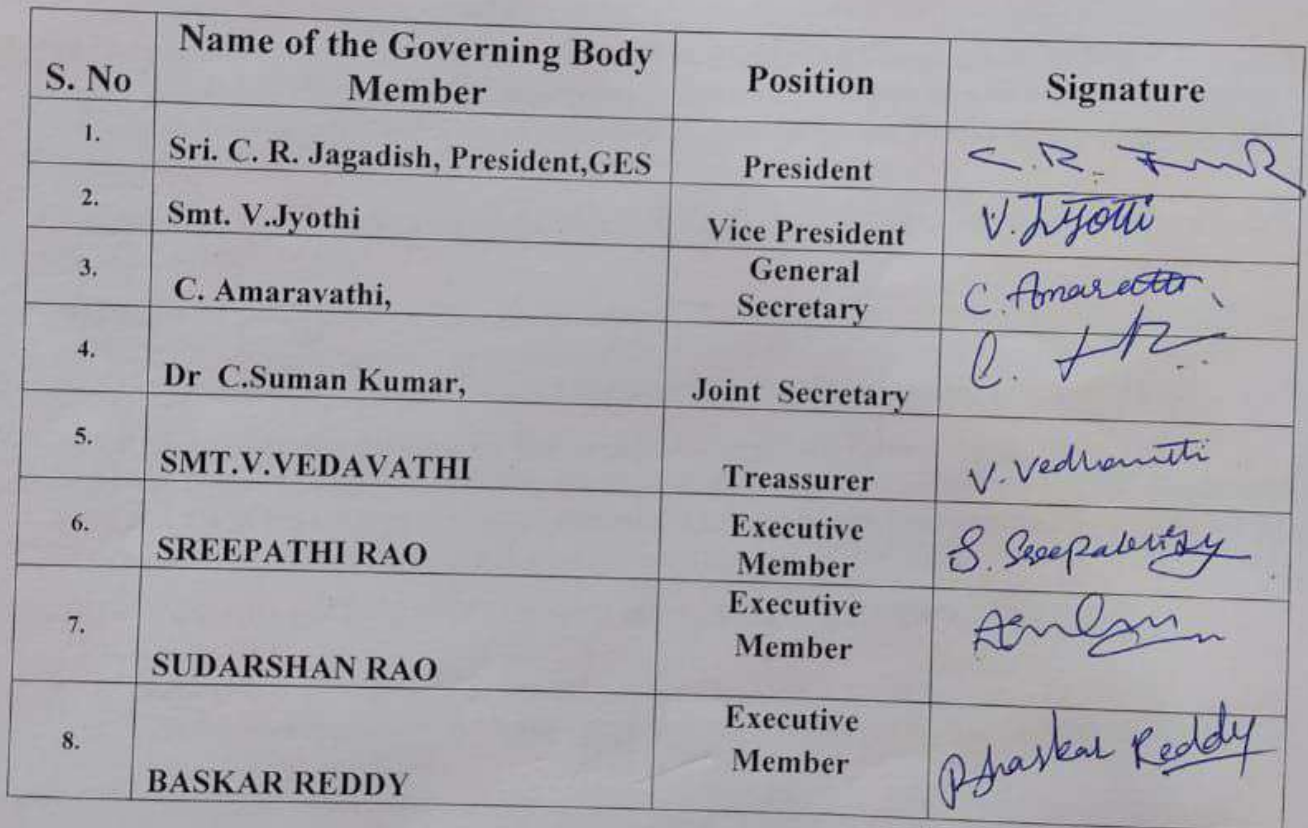 S. No
Name of the Governing Body
Member
Position
Signature
1.
Sri. C. R. Jagadish, President,GES
President
C. R.
2.
Smt. V.Jyothi
Vice President
V. Jyotti
3.
C. Amaravathi,
General
Secretary
C. Amar
4.
Dr C.Suman Kumar,
Joint Secretary
C.
5.
SMT.V.VEDAVATHI
Treassurer
V.
6.
SREEPATHI RAO
Executive
Member
S.
7.
SUDARSHAN RAO
Executive
Member
8.
BASKAR REDDY
Executive
Member
Bhaskar Reddy